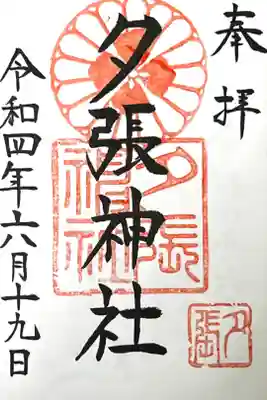 奉拝
夕張神社
令和四年六月十九日
夕張神社
夕張